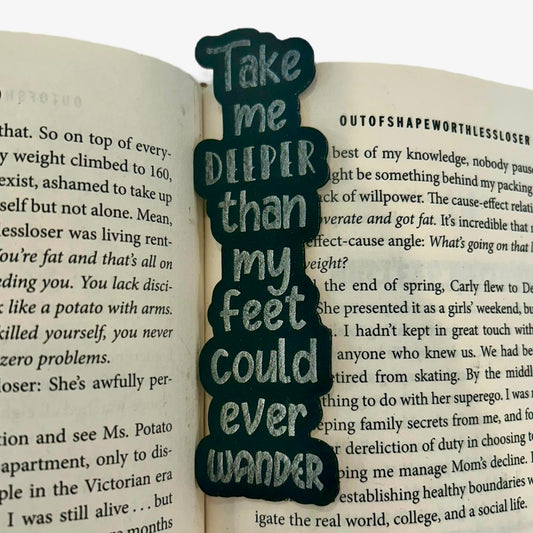 Take
me
DEEPER
than
my
feet
could
ever
WANDER
that. So on top of every-
y weight climbed to 160,
exist, ashamed to take up
self but not alone. Mean,
lessloser was living rent-
You're fat and that's all on
eding you. You lack disci-
k like a potato with arms.
killed yourself, you never
zero problems.
loser: She's awfully per-
tion and see Ms. Potato
apartment, only to dis-
ple in the Victorian era
I was still alive... but
months
OUTOFSHAPEWORTHLESSLOSER
best of my knowledge, nobody paus
ght be something behind my packing
ack of willpower. The cause-effect relati
overate and got fat. It's incredible that n
effect-cause angle: What's going on that I
weight?
the end of spring, Carly flew to De
She presented it as a girls' weekend, bu
. I hadn't kept in great touch with
anyone who knew us. We had be
etired from skating. By the middl
thing to do with her superego. I was n
eping family secrets from me, and fo
dereliction of duty in choosing to
ping me manage Mom's decline. I
establishing healthy boundaries w
igate the real world, college, and a social life.